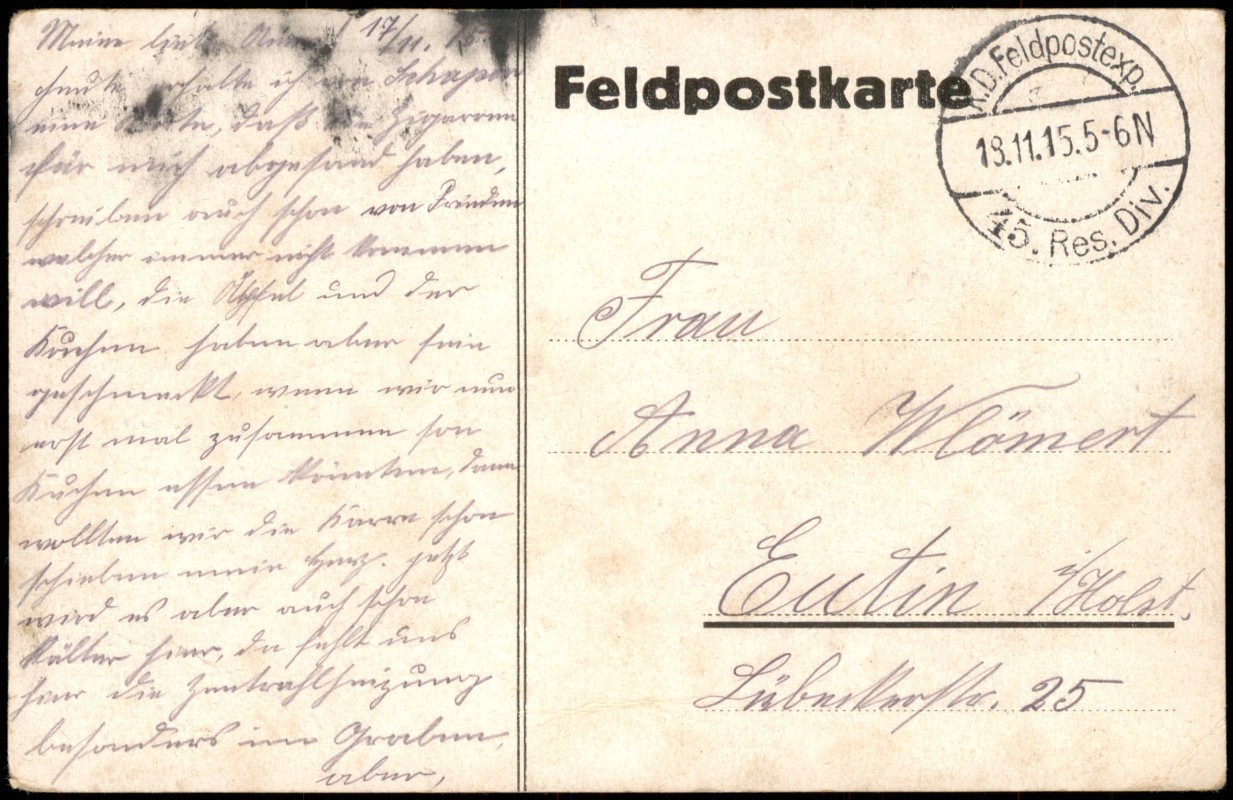 Meine liebe 17/11. 15.
heute erhalte ich von Schaper
eine Karte, daß sie Zigarren
für mich abgesand haben,
schreiben auch schon von Frieden
welcher immer nicht kommen
will, die Äpfel und der
Kuchen haben aber fein
geschmeckt, wenn wir nun
erst mal zusammen son
Kuchen essen könnten, dann
wollten wir die Karre schon
schieben mein Herz. jetzt
wird es aber auch schon
kälter hier, da fehlt uns
hier die Zentrahlheizung
besonders im Graben,
aber,
Feldpostkarte
K.D. Feldpostexp.
18.11.15.5-6N
45. Res. Div.
Frau
Anna Wlömert
Eutin i/Holst.
Lübeckerstr. 25